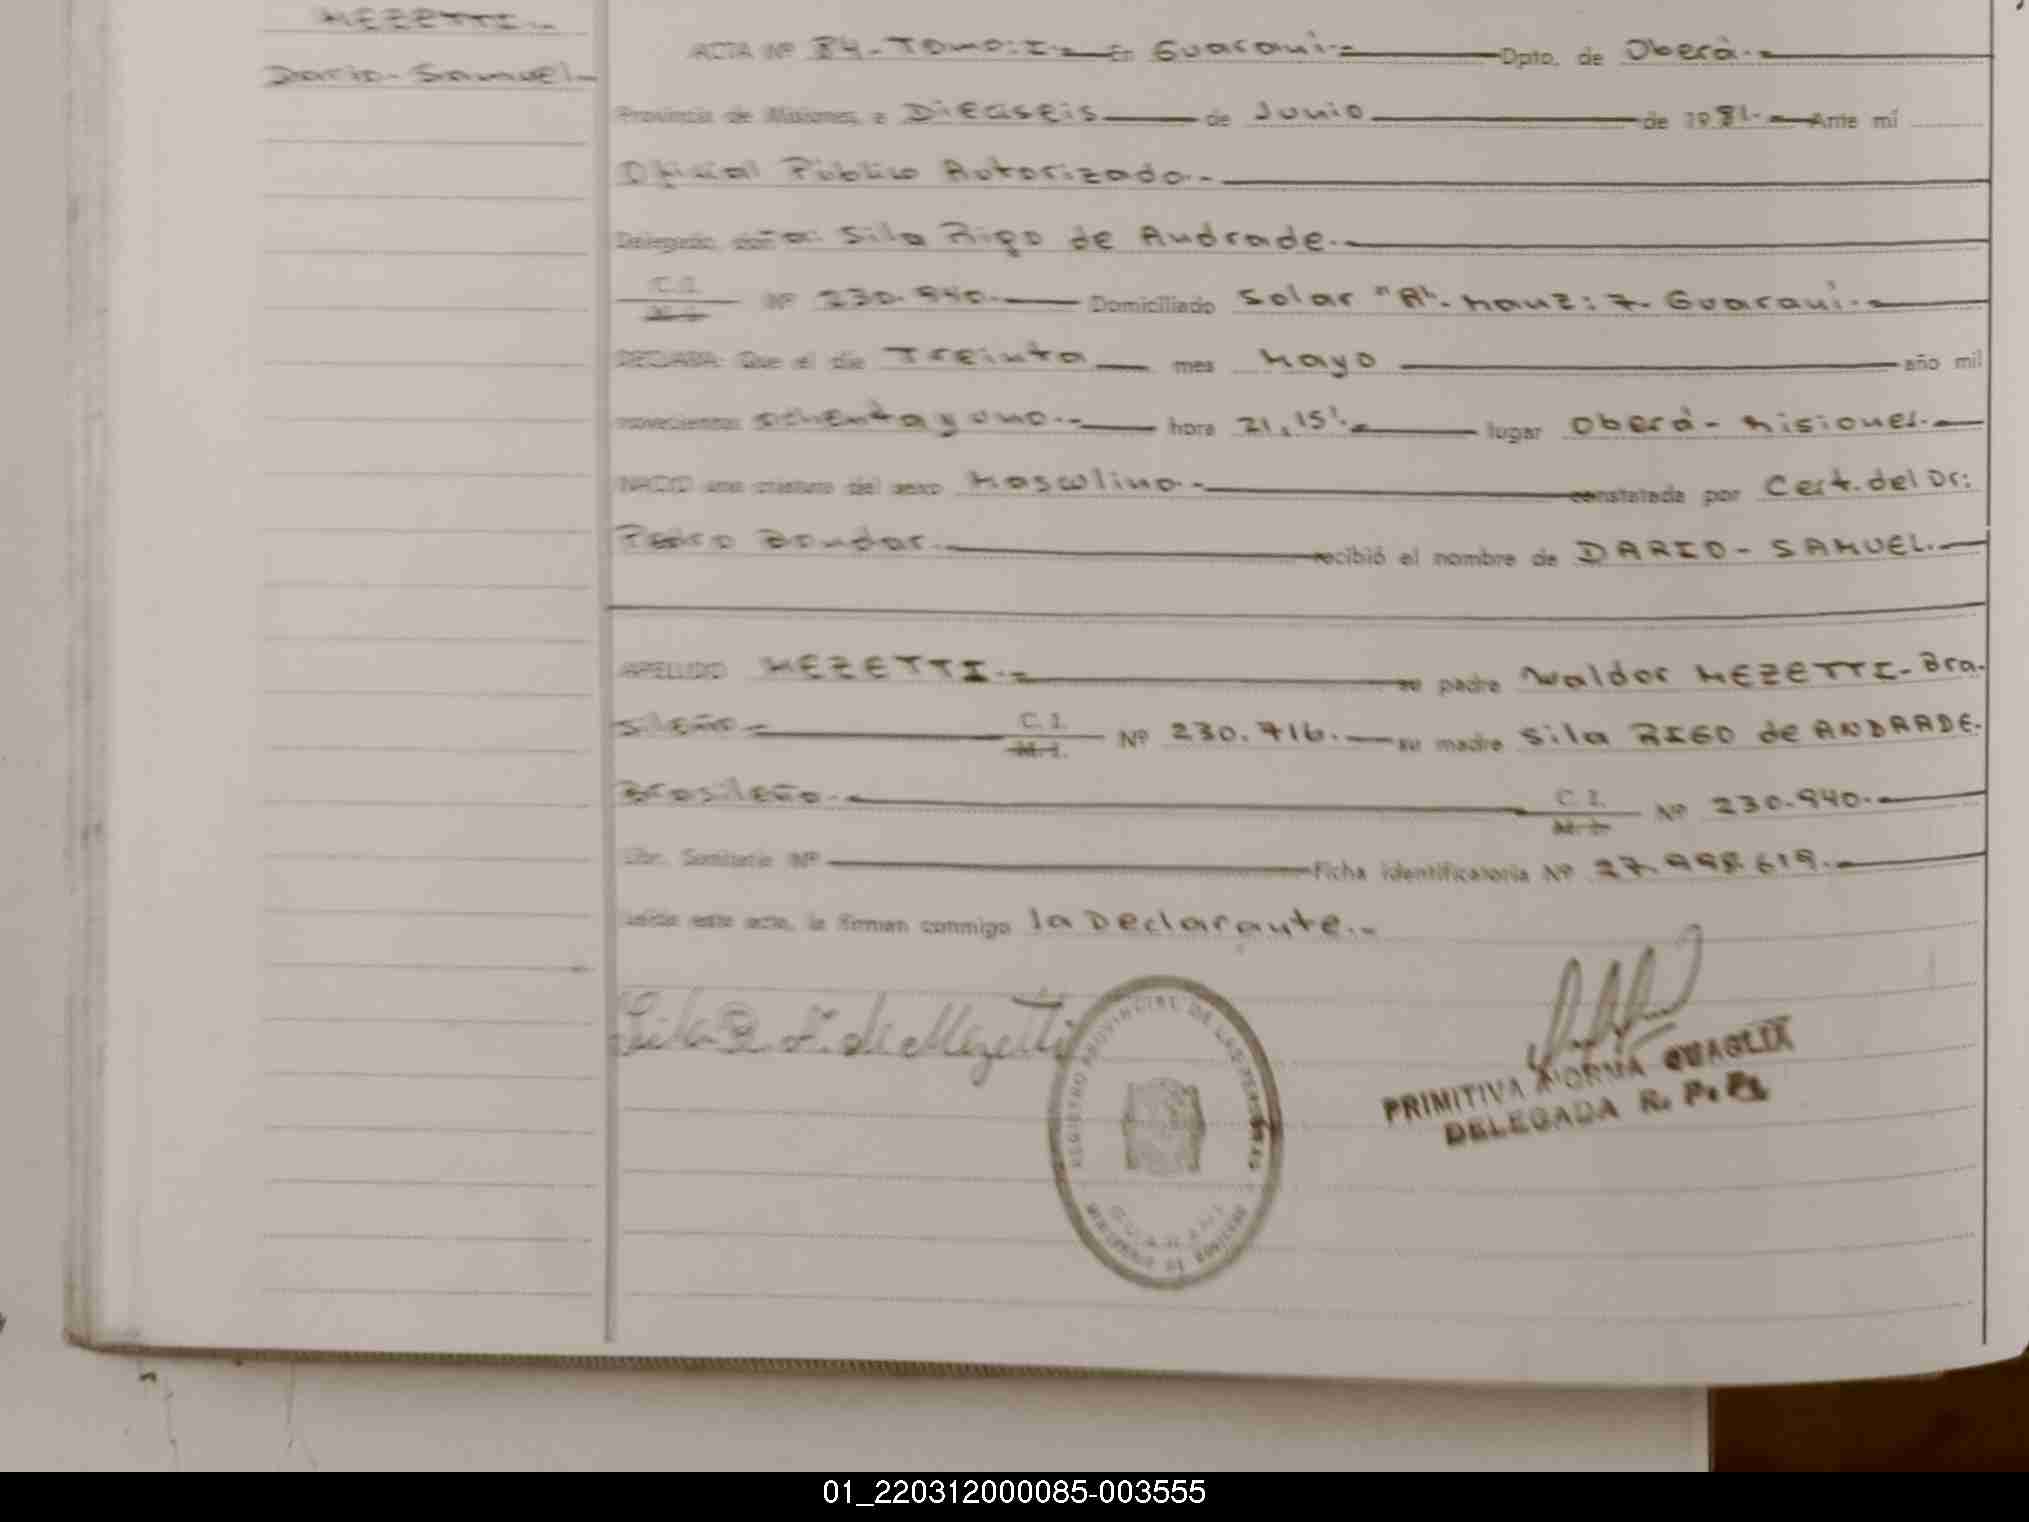 MEZETTI.-
Dario- Samuel-
ACTA Nº 84- Tomo: I - En Guaraní.- Dpto. de Oberá.-
Provincia de Misiones, a Dieciseis de Junio de 1981.- Ante mí
Oficial Público Autorizado.-
Delegado, doña: Sila Rigo de Andrade.-
C.I.
M.I. Nº 230.940.- Domiciliado Solar "A"- Manz: 7- Guaraní.-
DECLARA: Que el día Treinta mes Mayo año mil
novecientos ochenta y uno.- hora 21,15'.- lugar Oberá- Misiones.-
NACIO una criatura del sexo Masculino.- constatada por Cert. del Dr:
Pedro Bondar.- recibió el nombre de DARIO- SAMUEL.-
APELLIDO MEZETTI.- su padre Waldor MEZETTI- Bra-
sileño- C.I.
M.I. Nº 230.716.- su madre Sila RIGO de ANDRADE.
Brasileña.- C.I.
M.I. Nº 230.940.-
Libr. Sanitaria Nº Ficha identificatoria Nº 27.998.619.-
Leída este acta, la firman conmigo la Declarante.-
Sila R. A. de Mezetti
REGISTRO PROVINCIAL DE LAS PERSONAS
GUARANI
MINISTERIO DE GOBIERNO
PRIMITIVA NORMA QUAGLIA
DELEGADA R. P. P.
01_220312000085-003555